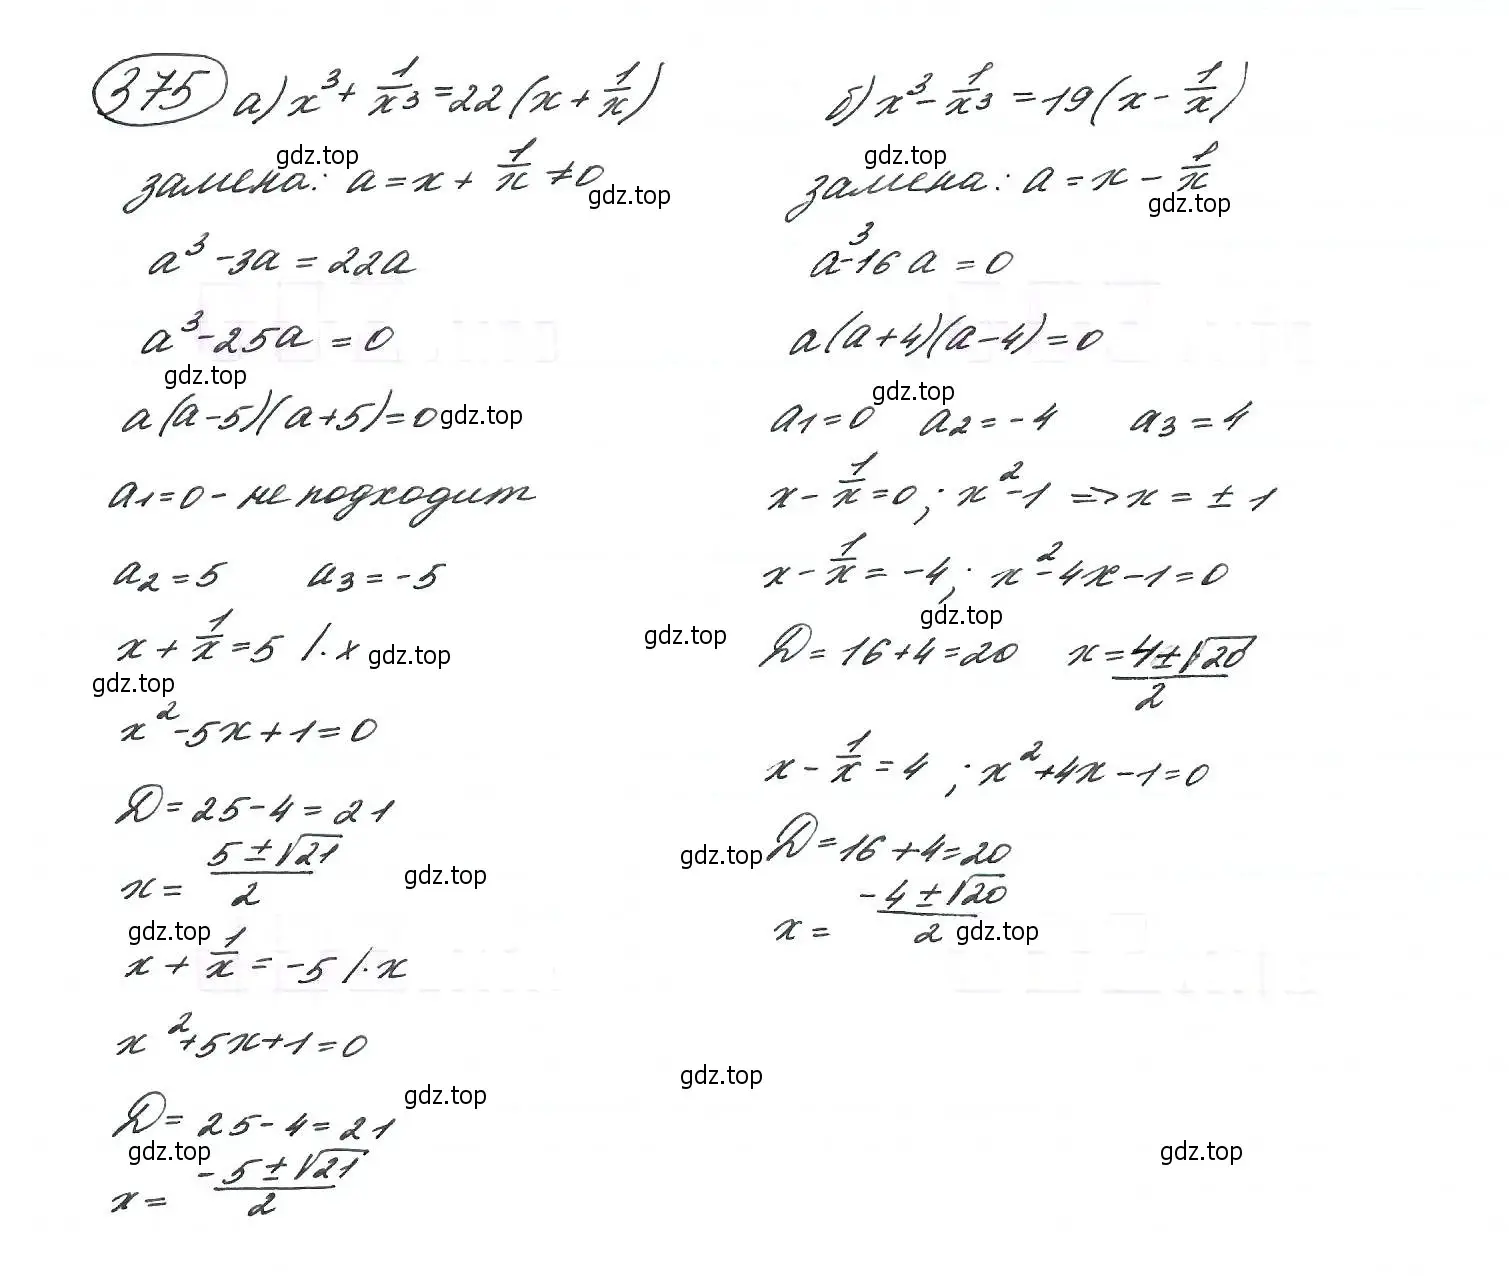 375 а) x³ + 1/x³ = 22(x + 1/x)
gdz.top
замена: a = x + 1/x ≠ 0
gdz.top
a³ - 3a = 22a
a³ - 25a = 0
gdz.top
a(a-5)(a+5) = 0 gdz.top
a1 = 0 - не подходит
a2 = 5 a3 = -5
x + 1/x = 5 /·x gdz.top
gdz.top
x² - 5x + 1 = 0
D = 25 - 4 = 21
x = (5 ± √21)/2 gdz.top
gdz.top
x + 1/x = -5 /·x
x² + 5x + 1 = 0
gdz.top
D = 25 - 4 = 21
gdz.top
x = (-5 ± √21)/2
б) x³ - 1/x³ = 19(x - 1/x)
gdz.top
замена: a = x - 1/x
gdz.top
a³ - 16a = 0
a(a+4)(a-4) = 0
gdz.top
a1 = 0 a2 = -4 a3 = 4
x - 1/x = 0; x² - 1 => x = ± 1
x - 1/x = -4; x² - 4x - 1 = 0
gdz.top
gdz.top
D = 16 + 4 = 20 x = (4 ± √20)/2
x - 1/x = 4; x² + 4x - 1 = 0
gdz.top D = 16 + 4 = 20
x = (-4 ± √20)/2 gdz.top
gdz.top
gdz.top